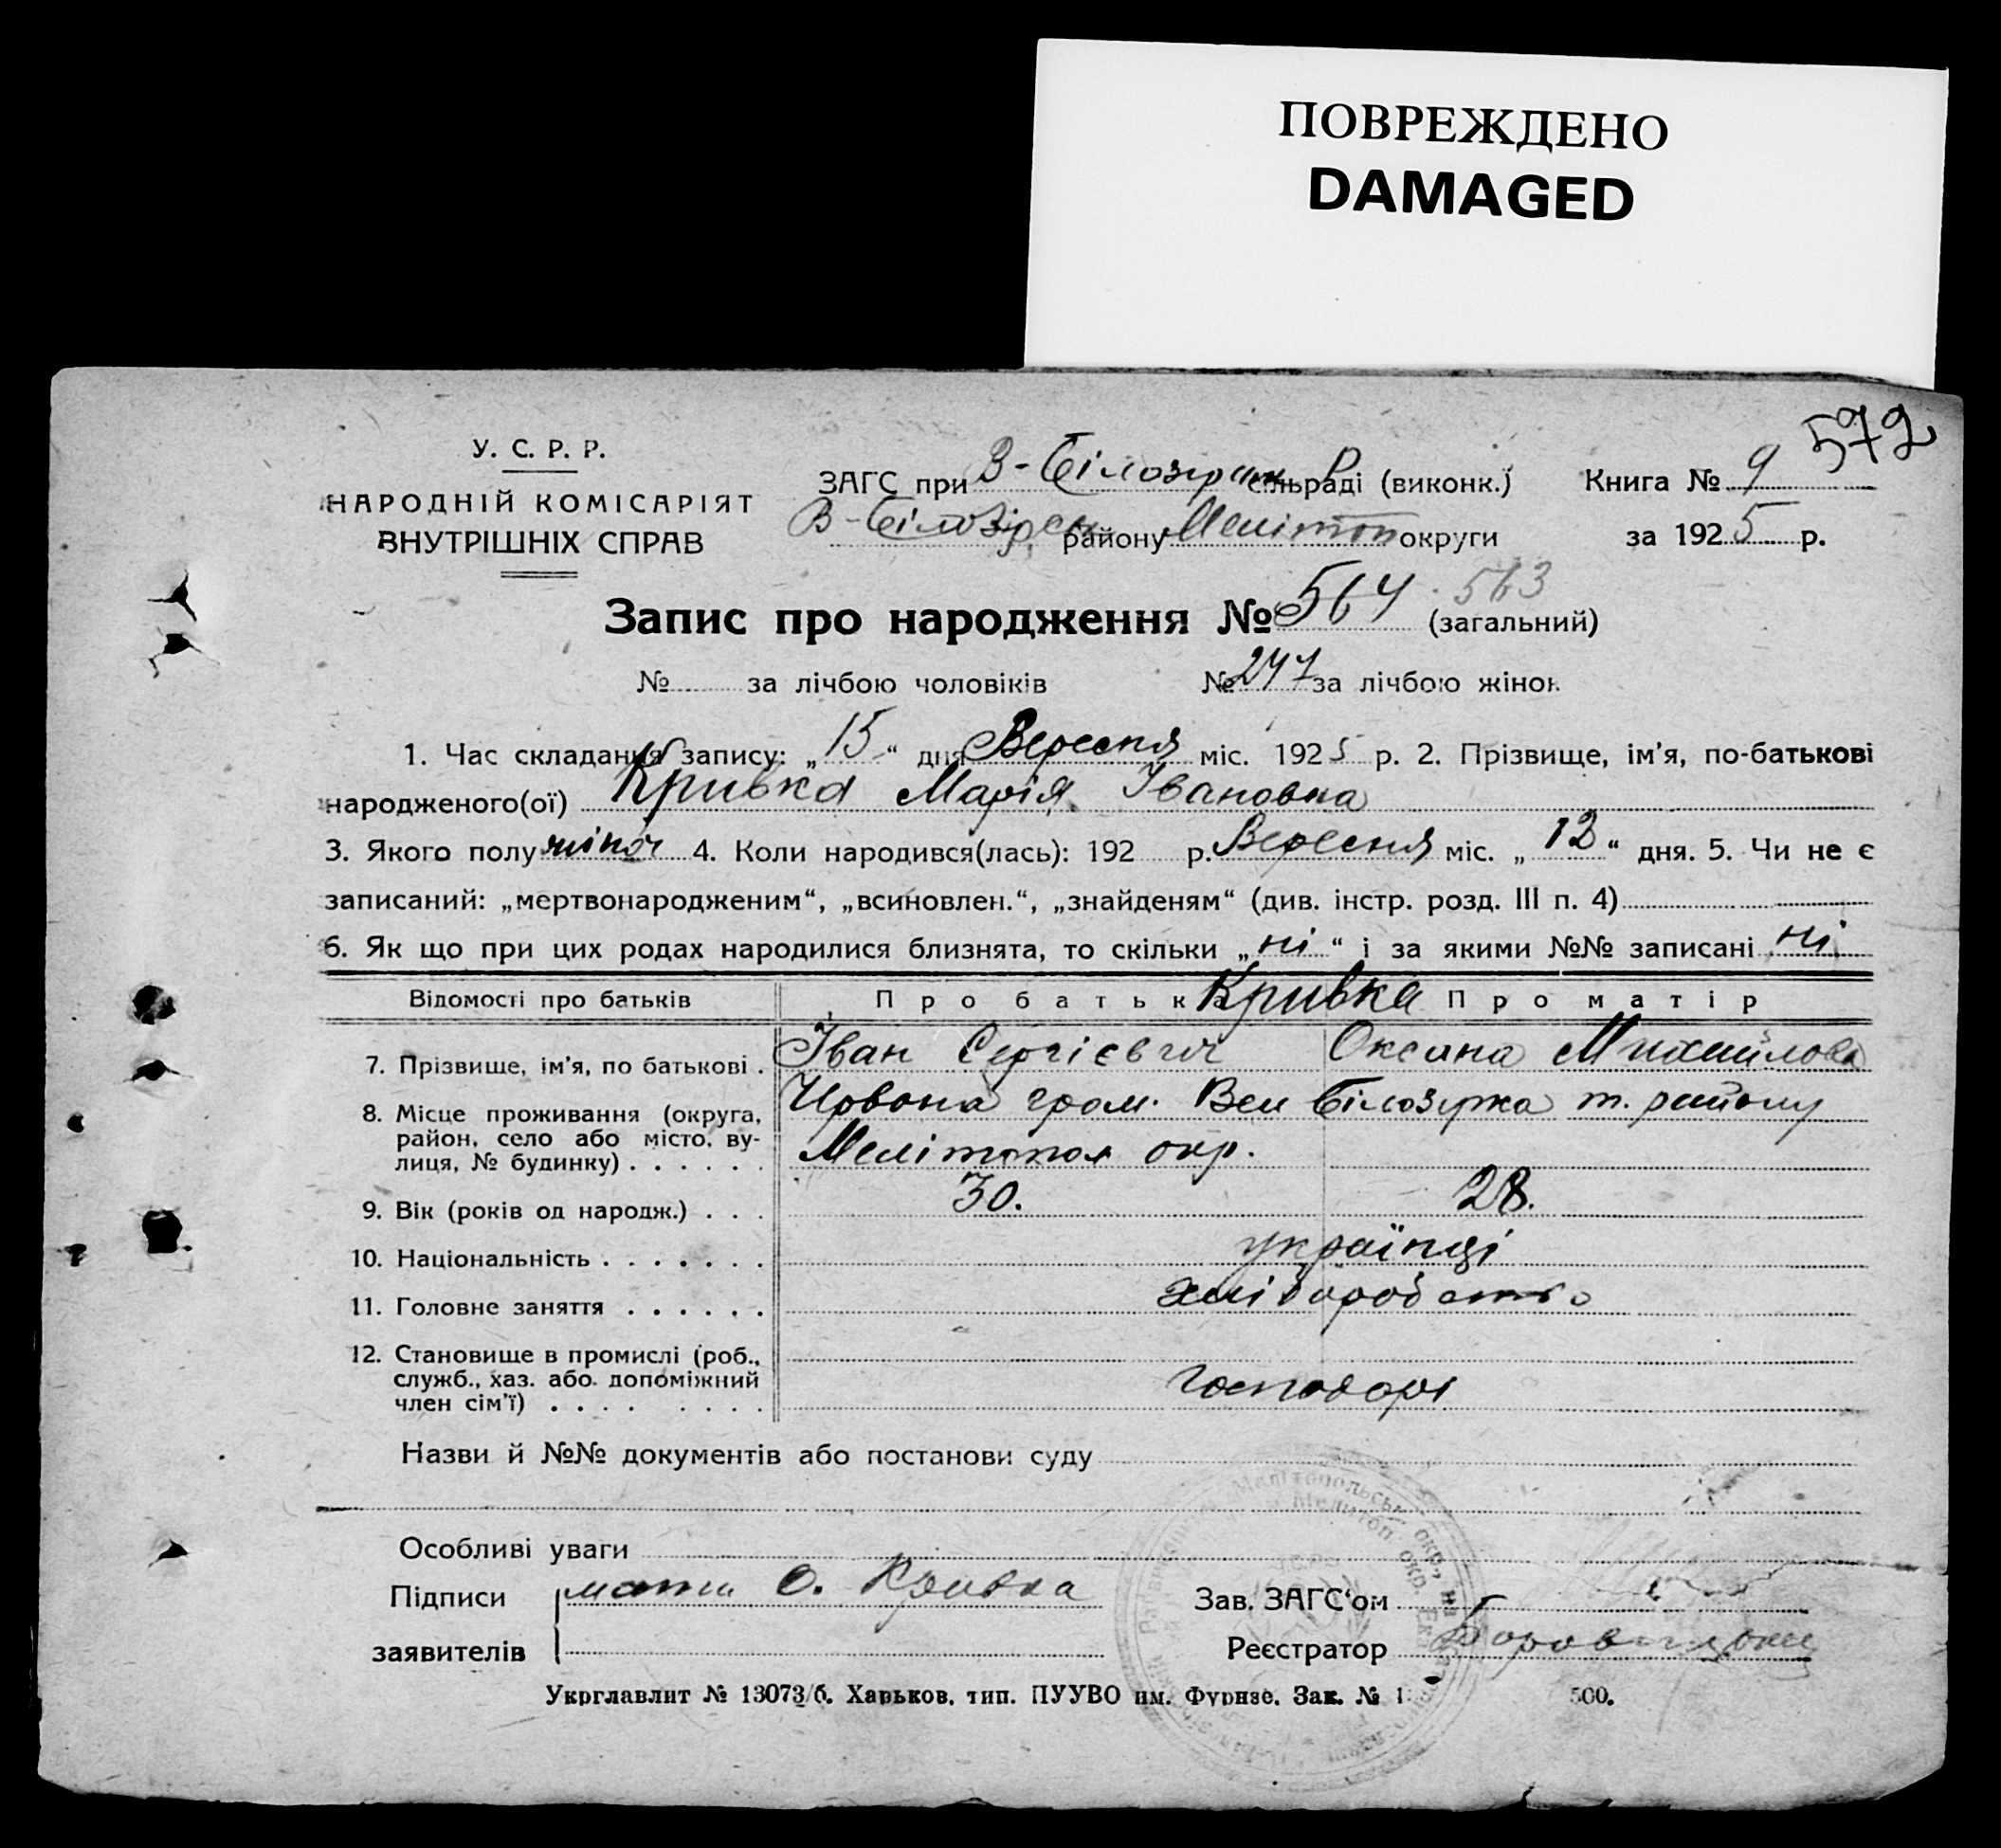 ПОВРЕЖДЕНО
DAMAGED
572
У. С. Р. Р.
НАРОДНІЙ КОМІСАРІЯТ
ВНУТРІШНІХ СПРАВ
ЗАГС при В-Білозірськ сільраді (виконк.) Книга № 9
В-Білозірськ району Мелітоп округи за 1925 р.
Запис про народження № 564 563 (загальний)
№ за лічбою чоловіків № 247 за лічбою жінок
1. Час складання запису: „15“ дня Вересня міс. 1925 р. 2. Прізвище, ім'я, по-батькові
народженого(ої) Кривка Марія Івановна
3. Якого полу жіноч 4. Коли народився(лась): 192 р. Вересня міс. „12“ дня. 5. Чи не є
записаний: „мертвонародженим“, „всиновлен.“, „знайденям“ (див. інстр. розд. III п. 4)
6. Як що при цих родах народилися близнята, то скільки „ні“ і за якими №№ записані ні
Відомості про батьків Про батька Кривка Про матір
7. Прізвище, ім'я, по батькові . Іван Сергієвич Оксана Михайлова
8. Місце проживання (округа, район, село або місто, вулиця, № будинку) . . . . . . Червона гром. Вел Білозірка т. району
Мелітопол окр.
9. Вік (років од народж.) . . . 30. 28.
10. Національність . . . . . . . українці
11. Головне заняття . . . . . . хліборобство
12. Становище в промислі (роб., служб., хаз. або допоміжний член сім'ї) . . . . . . . . господарі
Назви й №№ документів або постанови суду
Особливі уваги
Підписи мати О. Кривка Зав. ЗАГС'ом
заявителів Реєстратор
Укрглавлит № 13073/б. Харьков, тип. ПУУВО им. Фрунзе. Зак. № 1 500.